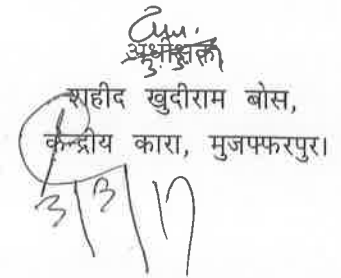 अधीक्षक
शहीद खुदीराम बोस,
केन्द्रीय कारा, मुजफ्फरपुर।